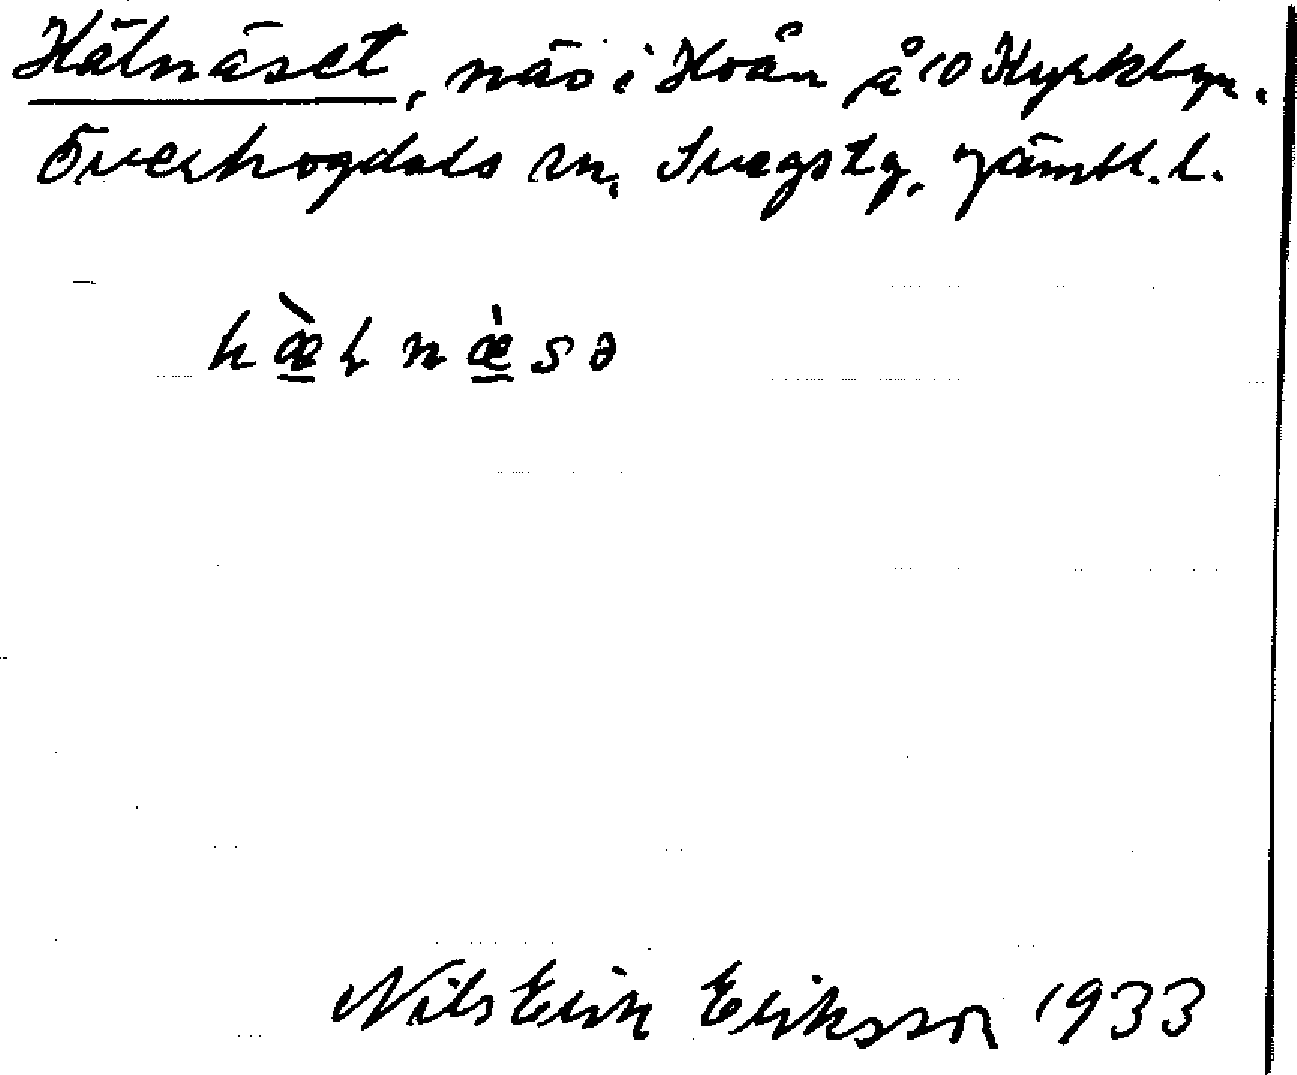 Hälnäset, näs i Hoån å 10 Kyrkbyn.
Överhogdals sn. Svegs tg. Jämtl. l.
hæ̀l næ̀sə
Nils Erik Eriksson 1933